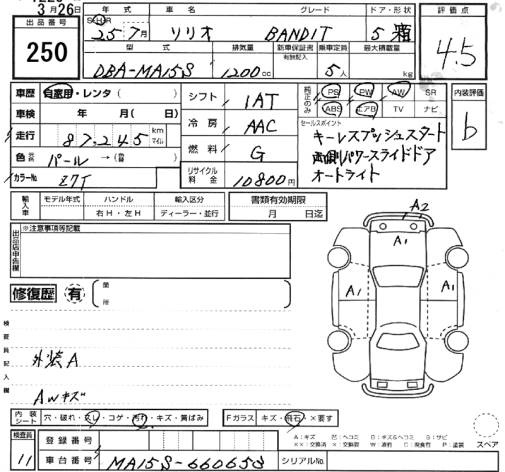 3月26日
出品番号
250
年式 車名 グレード ドア・形状
S H R 25年7月 ソリオ BANDIT 5 箱
型式 排気量 新車保証書 乗車定員 最大積載量
有無記入
DBA-MA15S 1200cc 5人 kg
評価点
4.5
車歴 自家用・レンタ( )
車検 年 月( 日)
走行 87,245 km マイル
色 パール →( )
カラーNo Z7T
シフト IAT
冷房 AAC
燃料 G
リサイクル料金 10800円
純正のみ PS PW AW SR
ABS エアB TV ナビ
セールスポイント
キーレスプッシュスタート
両側パワースライドドア
オートライト
内装評価
b
輸入車 モデル年式 ハンドル 輸入区分
右H・左H ディーラー・並行
書類有効期限
月 日迄
出品店申告欄
※注意事項等記載
修復歴 有 箇所
検査員記入欄
外装A
AWキズ
A2
A1
A1 A1
内装シート 穴・破れ・スレ・コゲ・汚れ・キズ・黄ばみ
Fガラス キズ・飛石・×要す
検査員
11
登録番号
車台番号 MA15S-660658
シリアルNo.
A:キズ 凹:ヘコミ B:キズ&ヘコミ S:サビ
××:交換済 ×:交換要 W:波打 C:腐食有 P:塗装
スペア